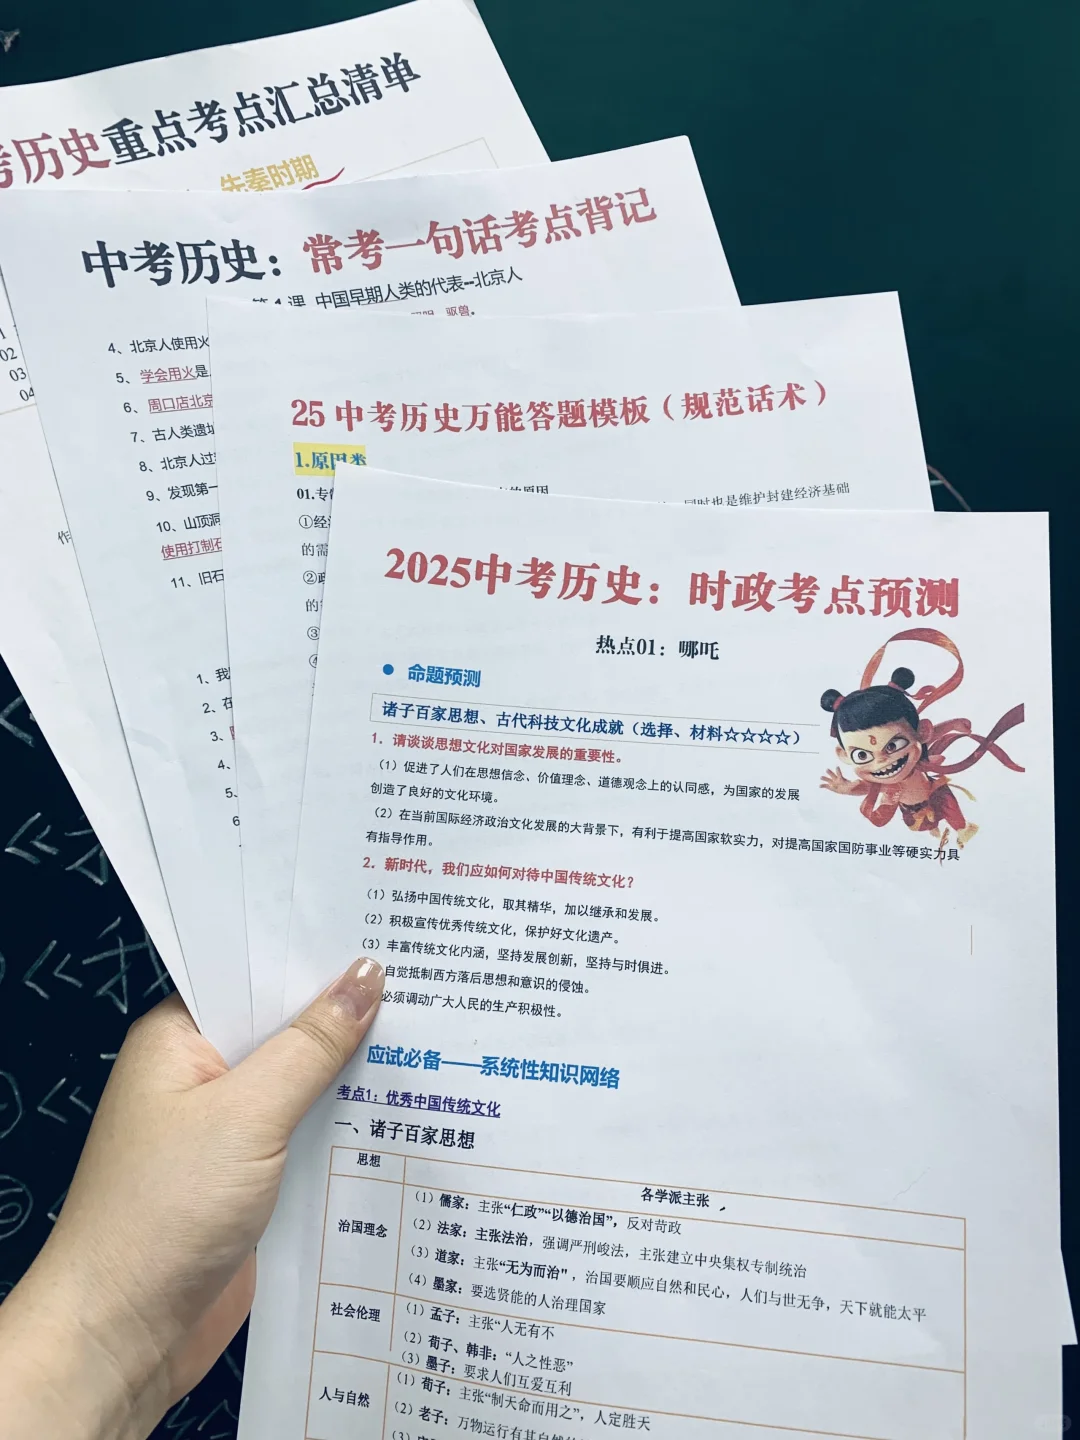 考历史重点考点汇总清单
先秦时期
02
03
04
作
中考历史：常考一句话考点背记
第1课 中国早期人类的代表--北京人
驱兽。
4、北京人使用火
5、学会用火是
6、周口店北京
7、古人类遗址
8、北京人过
9、发现第一
10、山顶洞
使用打制石
11、旧石
1、我
2、在
3、
4、
5、
6
25中考历史万能答题模板（规范话术）
1.原因类
01.专
的原因
同时也是维护封建经济基础
①经济
的需
②政
的
③
2025中考历史：时政考点预测
热点01：哪吒
● 命题预测
诸子百家思想、古代科技文化成就（选择、材料☆☆☆☆）
1．请谈谈思想文化对国家发展的重要性。
（1）促进了人们在思想信念、价值理念、道德观念上的认同感，为国家的发展
创造了良好的文化环境。
（2）在当前国际经济政治文化发展的大背景下，有利于提高国家软实力，对提高国家国防事业等硬实力具
有指导作用。
2．新时代，我们应如何对待中国传统文化？
（1）弘扬中国传统文化，取其精华，加以继承和发展。
（2）积极宣传优秀传统文化，保护好文化遗产。
（3）丰富传统文化内涵，坚持发展创新，坚持与时俱进。
自觉抵制西方落后思想和意识的侵蚀。
必须调动广大人民的生产积极性。
应试必备——系统性知识网络
考点1：优秀中国传统文化
一、诸子百家思想
思想
各学派主张
治国理念
（1）儒家：主张“仁政”“以德治国”，反对苛政
（2）法家：主张法治，强调严刑峻法，主张建立中央集权专制统治
（3）道家：主张“无为而治”，治国要顺应自然和民心，人们与世无争，天下就能太平
（4）墨家：要选贤能的人治理国家
社会伦理
（1）孟子：主张“人无有不
（2）荀子、韩非：“人之性恶”
（3）墨子：要求人们互爱互利
人与自然
（1）荀子：主张“制天命而用之”，人定胜天
（2）老子：万物运行有其自然
（3）